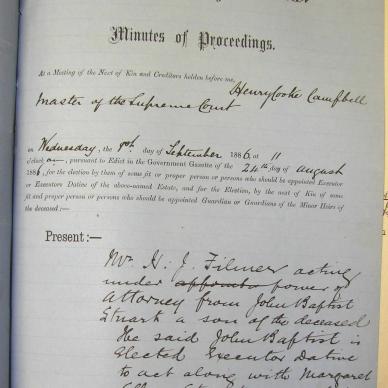 Minutes of Proceedings.
At a Meeting of the Next of Kin and Creditors holden before me,
Henry Cooke Campbell
Master of the Supreme Court
on Wednesday, the 8th day of September 1886 at 11
o'clock a , pursuant to Edict in the Government Gazette of the 24th day of August
1886, for the election by them of some fit or proper person or persons who should be appointed Executor
or Executors Dative of the above-named Estate, and for the Election, by the next of Kin of some
fit and proper person or persons who should be appointed Guardian or Guardians of the Minor Heirs of
the deceased:—
Present:—
Mr. H. J. Filmer acting
under power of
Attorney from John Baptist
Stuart a son of the deceased
The said John Baptist is
Elected Executor Dative
to act along with Margaret